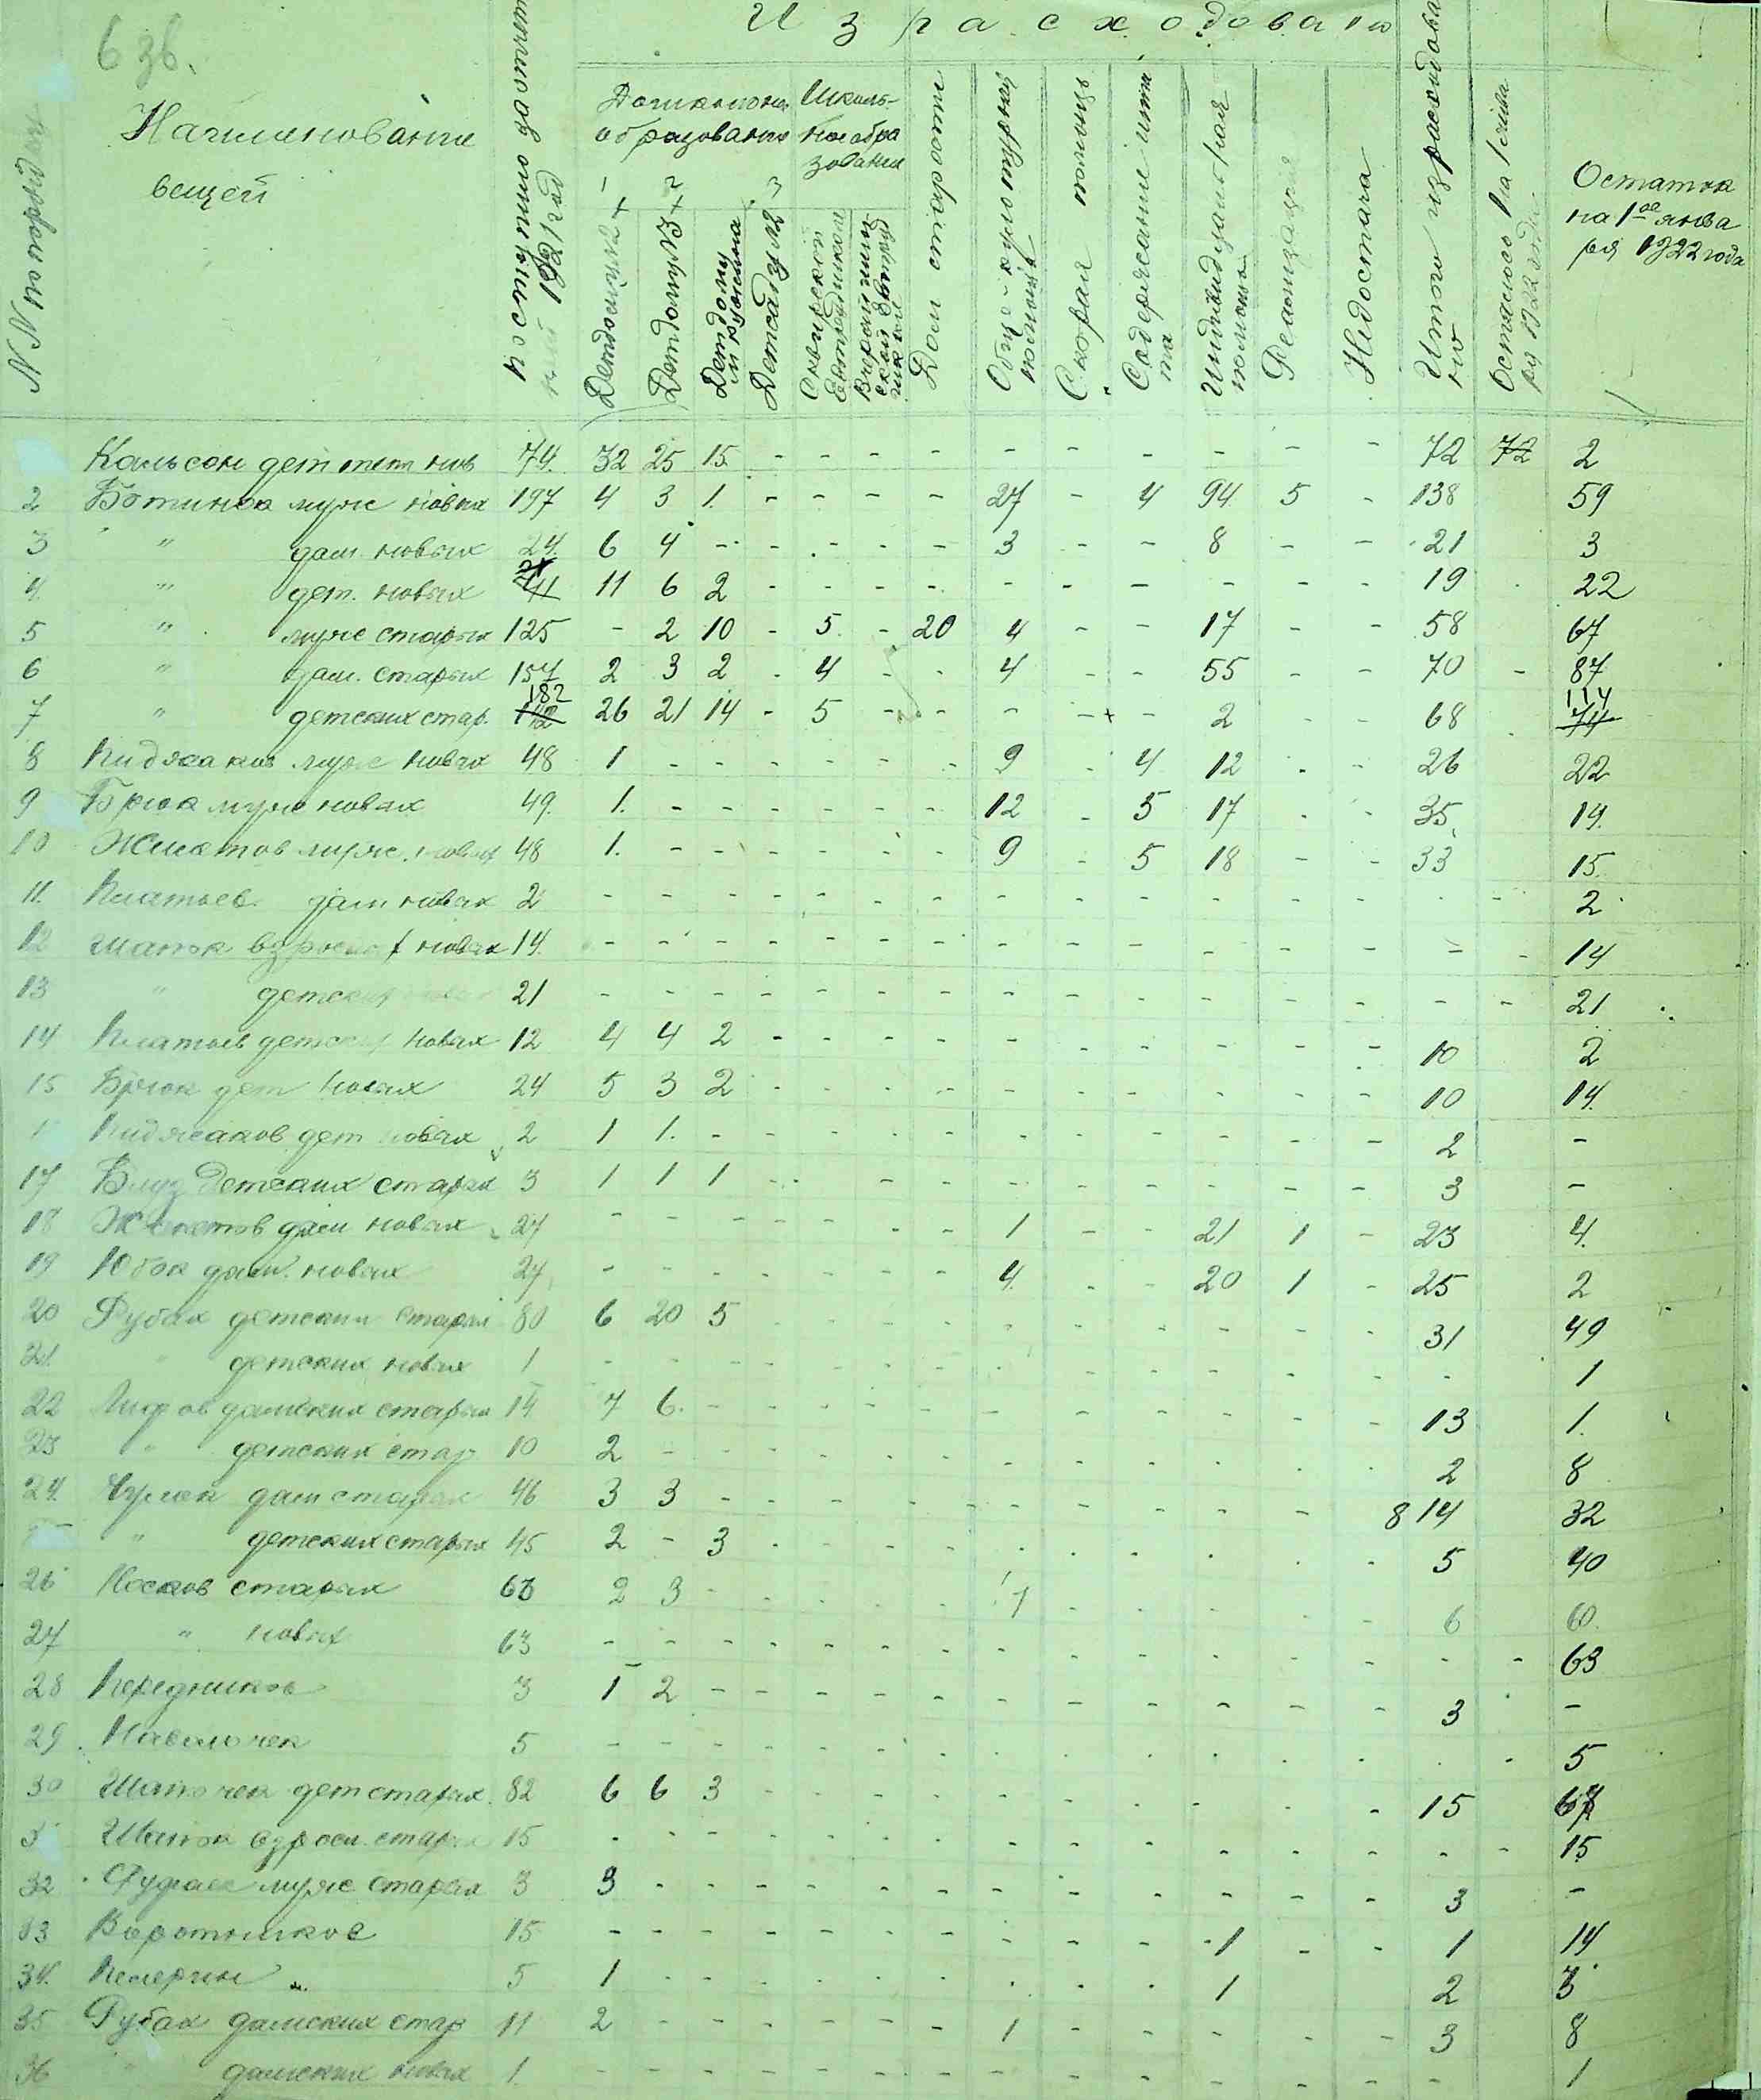 63б.
Израсходовано
NN по порядку
Наименование вещей
1921 год
Дошкольное образование
Школьное образование
1 2 3
Детдому №2
Детдому №3
Детдому
Детсаду №2
Дом старости
Общекультурная помощь
Скорая помощь
Содержание
Индивидуальная помощь
Реализация
Недостача
Итого израсходовано
Осталось на 1 января 1922 года
Остаток на 1ое января 1922 года
Кальсон дет нов 74. 32 25 15. - - - - - - - - - - 72 72 2
2 Ботинок муж новых 197 4 3 1. - - - - 27 - 4 94 5 - 138 59
3 " дам. новых 24. 6 4 - - - - - 3 - - 8 - - 21 3
4. " дет. новых 41 11 6 2 - - - - - - - - - - 19 22
5 " муж старых 125 - 2 10 - 5. - 20 4 - - 17 - - 58 67
6 " дам. старых 157 2 3 2 - 4 - - 4 - - 55 - - 70 - 87
7 " детских стар. 142 182 26 21 14 - 5 - - - - - 2 - - 68 74 114
8 Пиджаков муж новых 48 1 - - - - - - 9 - 4 12 - - 26 22
9 Брюк муж новых 49. 1. - - - - - - 12 - 5 17 - - 35. 14.
10 Жилетов муж. новых 48 1. - - - - - - 9 - 5 18 - - 33 15.
11. Платьев дам новых 2 - - - - - - - - - - - - - - - 2
12 Шапок взрослых новых 14. - - - - - - - - - - - - - - - 14
13 " детских новых 21 - - - - - - - - - - - - - - - 21
14 Платьев детских новых 12 4 4 2 - - - - - - - - - - 10 2
15 Брюк дет новых 24 5 3 2 - - - - - - - - - - 10 14.
Пиджаков дет новых 2 1 1. - - - - - - - - - - - 2 -
17 Блуз детских старых 3 1 1 1 - - - - - - - - - - 3 -
18 Жакетов дам новых 27 - - - - - - - 1 - - 21 1 - 23 4.
19 Юбок дам. новых 27. - - - - - - - 4. - - 20 1 - 25 2
20 Рубах детских старых 80 6 20 5 - - - - - - - - - - 31 49
21. " детских новых 1 - - - - - - - - - - - - - - 1
22 Лифов дамских старых 14 7 6. - - - - - - - - - - - 13 1.
23 " детских стар 10 2 - - - - - - - - - - - - 2 8
24. Чулок дам старых 46 3 3 - - - - - - - - - - 8 14 32
" детских старых 45 2 - 3 - - - - - - - - - - 5 40
26 Носков старых 63 2 3 - - - - - 1 - - - - - 6 60.
27 " новых 63 - - - - - - - - - - - - - - - 63
28 Передников 3 1 2 - - - - - - - - - - - 3 -
29. Наволочек 5 - - - - - - - - - - - - - - - 5
30 Шапочек дет старых. 82 6 6 3 - - - - - - - - - - 15 67
Шапок взросл. старых 15 - - - - - - - - - - - - - - - 15
32 Фуфаек муж старых 3 3 - - - - - - - - - - - - 3 -
33 Воротников 15 - - - - - - - - - - 1 - - 1 14
34. Пелерин 5 1 - - - - - - - - - 1 2 3
35 Рубах дамских стар 11 2 - - - - - - 1 - - - - - 3 8
36 " дамских новых 1. - - - - - - - - - - - - - - 1